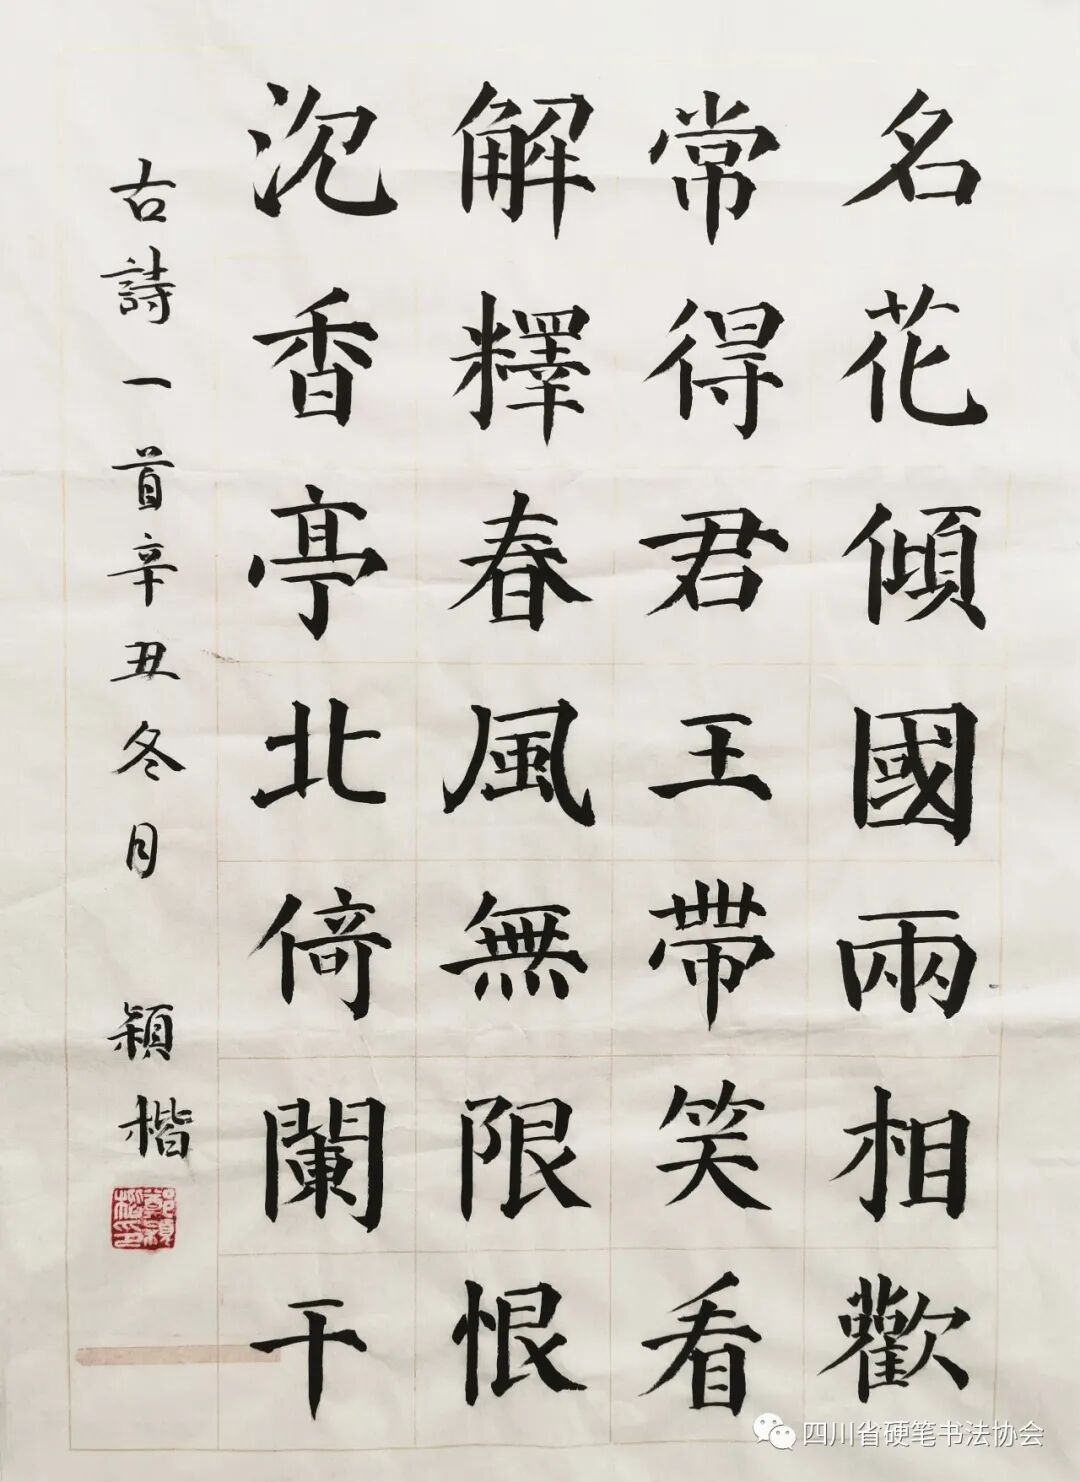 名花傾國兩相歡
常得君王帶笑看
解釋春風無限恨
沉香亭北倚闌干
古詩一首辛丑冬月 穎楷
鄭穎楷印
四川省硬笔书法协会